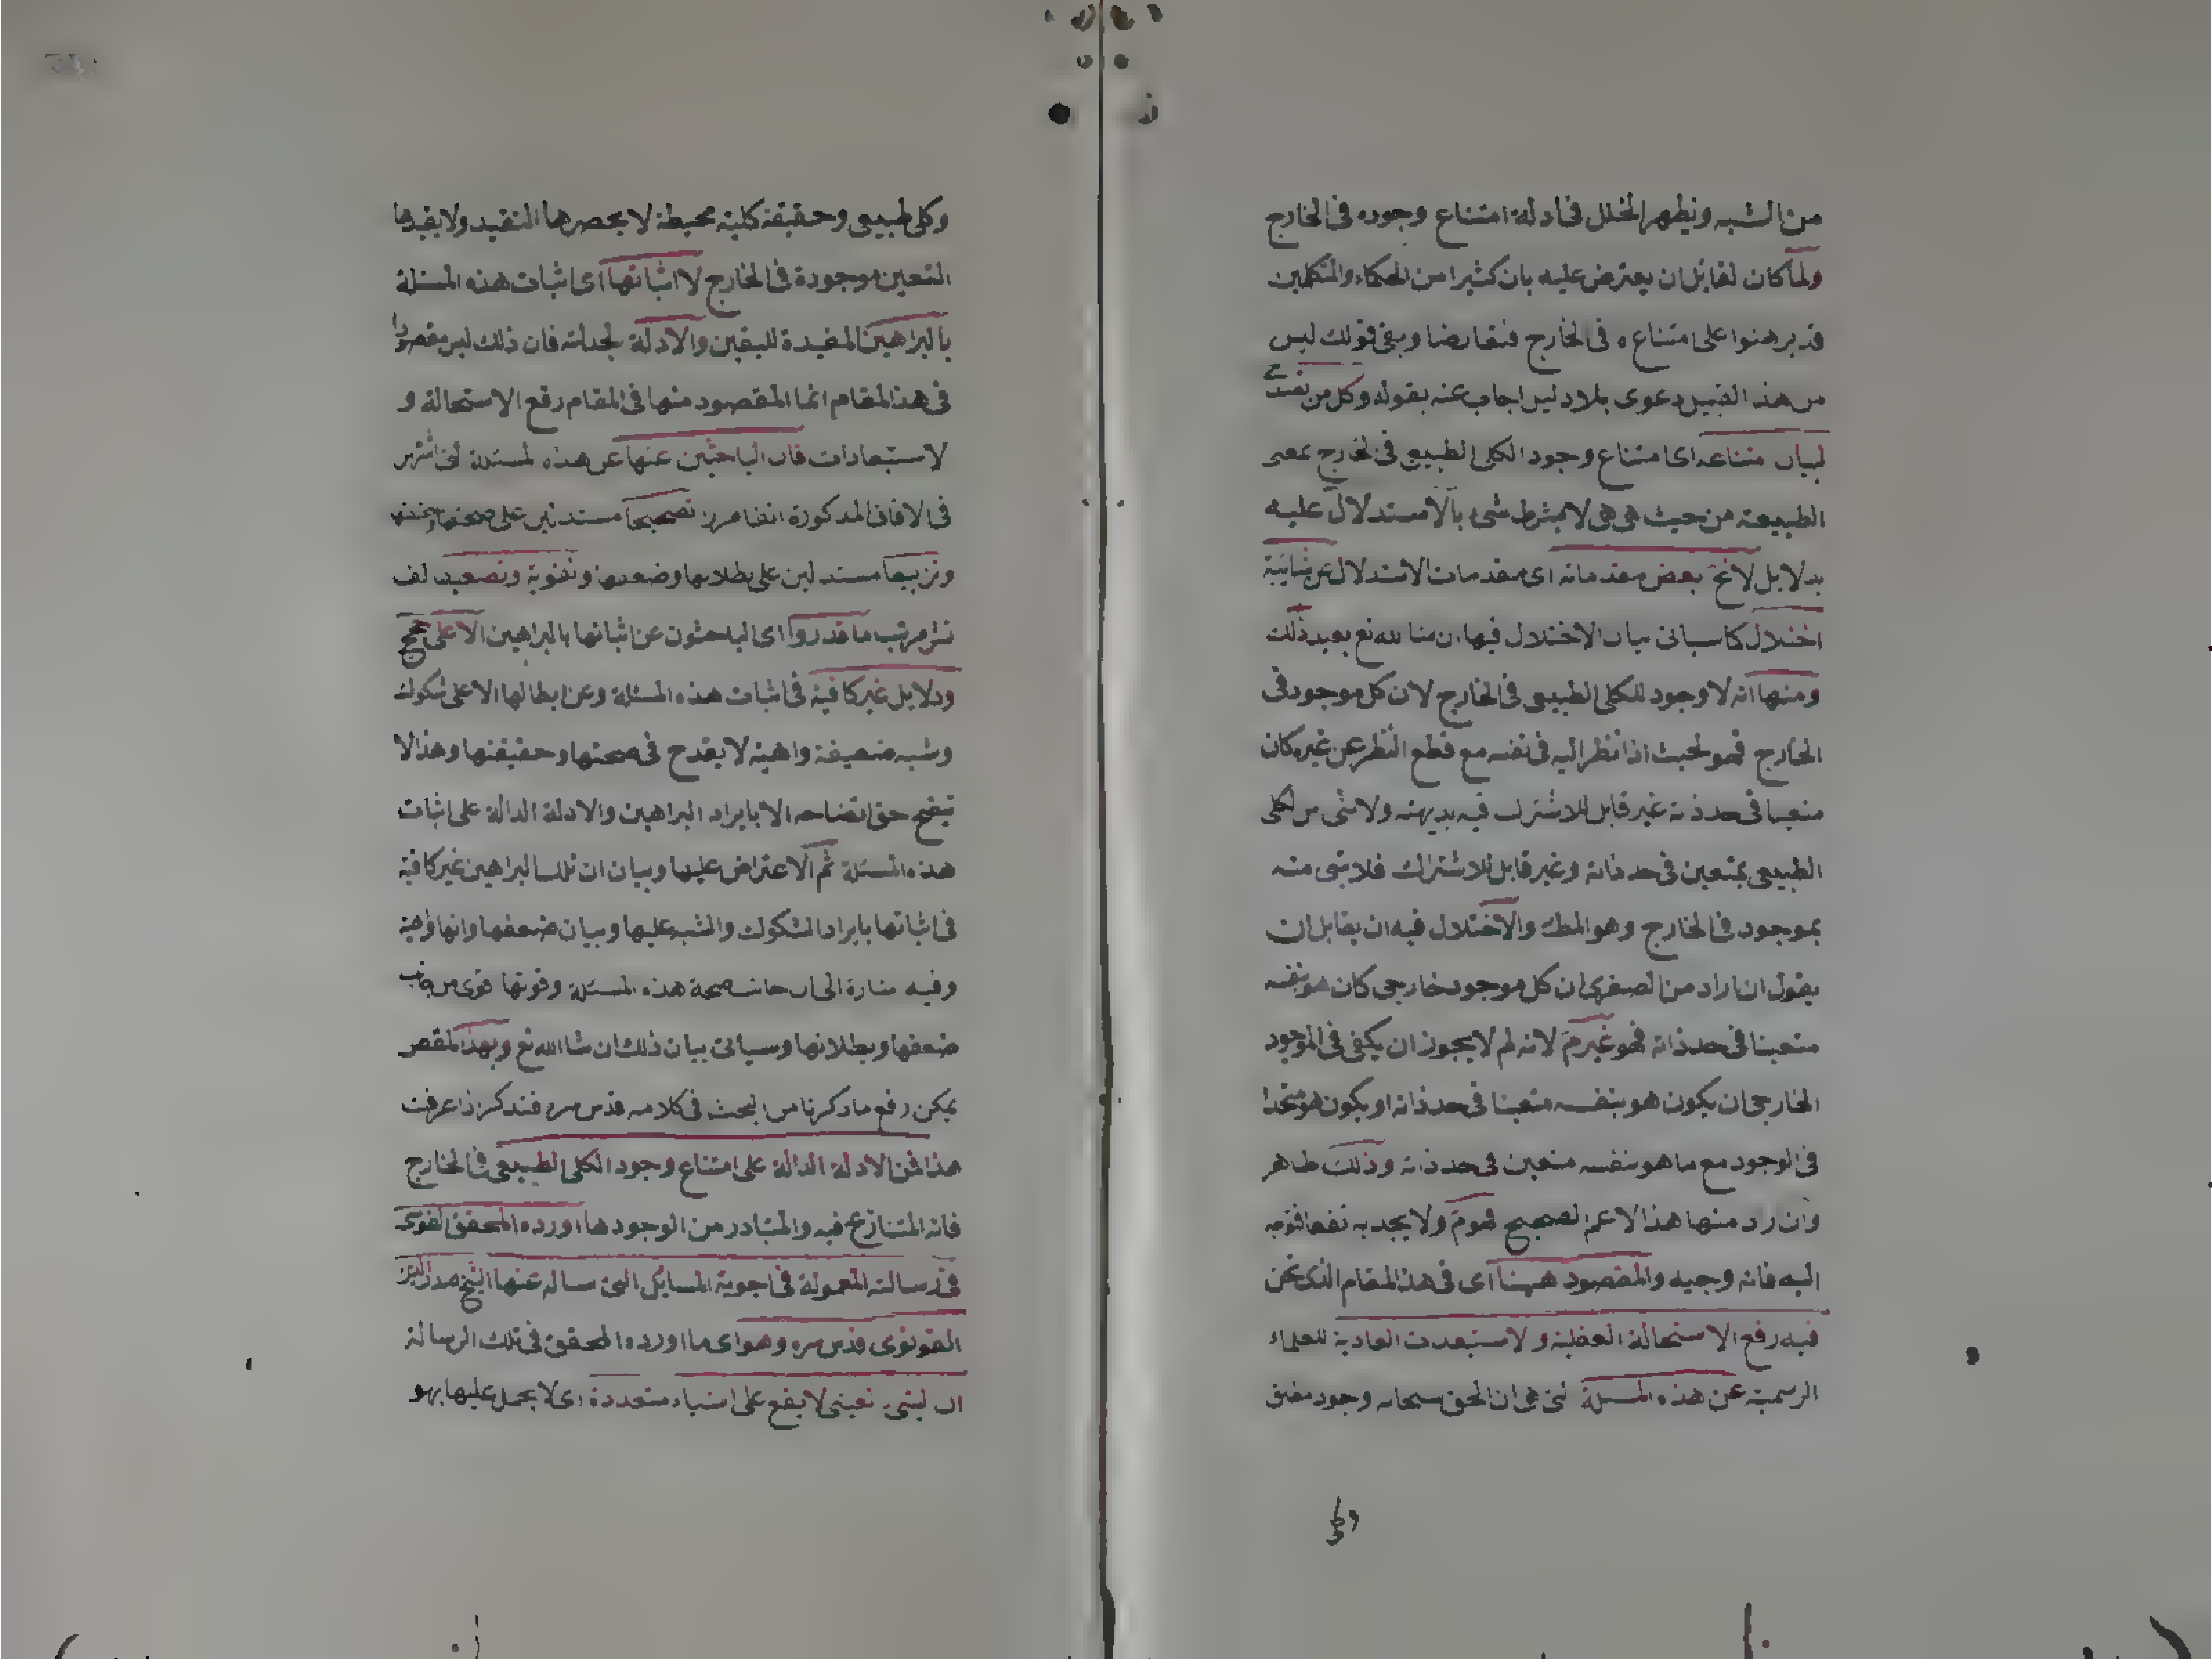 من الشبه ويظهر الخلل فى ادلة امتناع وجوده فى الخارج
ولما كان لقائل ان يعترض عليه بان كثيرا من الحكماء والمتكلمين
قد برهنوا على امتناعه فى الخارج فتعارضا وبقى قولك ليس
من هذا القبيل دعوى بلا دليل اجاب عنه بقوله وكل من تصدى
لبيان امتناعه اى امتناع وجود الكلى الطبيعى فى الخارج بمعنى
الطبيعة من حيث هى هى لا بشرط شىء بالاستدلال عليه
بدلايل لا تخ بعض مقدماته اى مقدمات الاستدلال عن شايبة
اختلال كما سياتى بيان الاختلال فيها ان شا الله تع بعيد ذلك
ومنها انه لا وجود للكلى الطبيعى فى الخارج لان كل موجود فى
الخارج فهو بحيث اذا نظر اليه فى نفسه مع قطع النظر عن غيره كان
متعينا فى حد ذاته غير قابل للاشتراك فيه بديهة ولا شى من الكلى
الطبيعى بمتعين فى حد ذاته وغير قابل للاشتراك فلا شى منه
بموجود فى الخارج وهو المط والاختلال فيه ان يقابل ان
يقول ان اراد من الصغرى ان كل موجود خارجى كان هو بنفسه
متعينا فى حد ذاته فهو غير م لانه لم لا يجوز ان يكفى فى الموجود
الخارجى ان يكون هو بنفسه متعينا فى حد ذاته او يكون هو متحدا
فى الوجود مع ما هو بنفسه متعين فى حد ذاته وذلك ظاهر
وان اراد منها هذا الاعم الصحيح فهو م ولا يجد به نفعا فتوجه
اليه فانه وجيه والمقصود ههنا اى فى هذا المقام الذى نحن
فيه رفع الاستحالة العقلية والاستبعادات العادية للعلماء
الرسمية عن هذه المسئلة التى هى ان الحق سبحانه وجود مطلق
وكلى
وكلى طبيعى وحقيقة كلية محيطة لا يحصرها التقييد ولا يقيدها
التعين موجودة فى الخارج لا اثباتها اى اثبات هذه المسئلة
بالبراهين المفيدة لليقين والادلة الجدلية فان ذلك ليس مقصودا
فى هذا المقام انما المقصود منها فى المقام رفع الاستحالة و
الاستبعادات فان الباحثين عنها عن هذه المسئلة التى اشتهر
فى الافاق المذكورة انفا من تصحيحا مستدلين على صحتها وحقيقتها
وتزييفا مستدلين على بطلانها وضعفها وتقوية وتضعيفا لف
نشر مرتب ما قدروا اى الباحثون عن اثباتها بالبراهين الا على حجج
ودلايل غير كافية فى اثبات هذه المسئلة وعن ابطالها الا على شكوك
وشبه ضعيفة واهية لا يقدح فى صحتها وحقيقتها وهذا لا
يتضح حق اتضاحه الا بايراد البراهين والادلة الدالة على اثبات
هذه المسئلة ثم الاعتراض عليها وبيان ان تلك البراهين غير كافية
فى اثباتها بايراد الشكوك والشبه عليها وبيان ضعفها وانها واهية
وفيه اشارة الى ان جانب صحة هذه المسئلة وقوتها اقوى من جانب
ضعفها وبطلانها وسياتى بيان ذلك ان شا الله تع وبهذا المقصد
يمكن رفع ما ذكرنا من البحث فى كلامه قدس سره فتذكر اذا عرفت
هذا فمن الادلة الدالة على امتناع وجود الكلى الطبيعى فى الخارج
فانه المتنازع فيه والمتبادر من الوجود ها اورده المحقق الطوسى
فى رسالته المعمولة فى اجوبة المسايل التى ساله عنها الشيخ صدر الدين
القونوى قدس سره وهو اى ما اورده المحقق فى تلك الرسالة
ان الشىء العينى لا يقع على اشياء متعددة اى لا يحمل عليها بهو